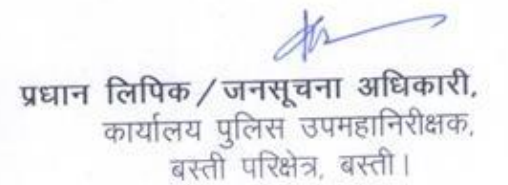 प्रधान लिपिक/जनसूचना अधिकारी,
कार्यालय पुलिस उपमहानिरीक्षक,
बस्ती परिक्षेत्र, बस्ती।